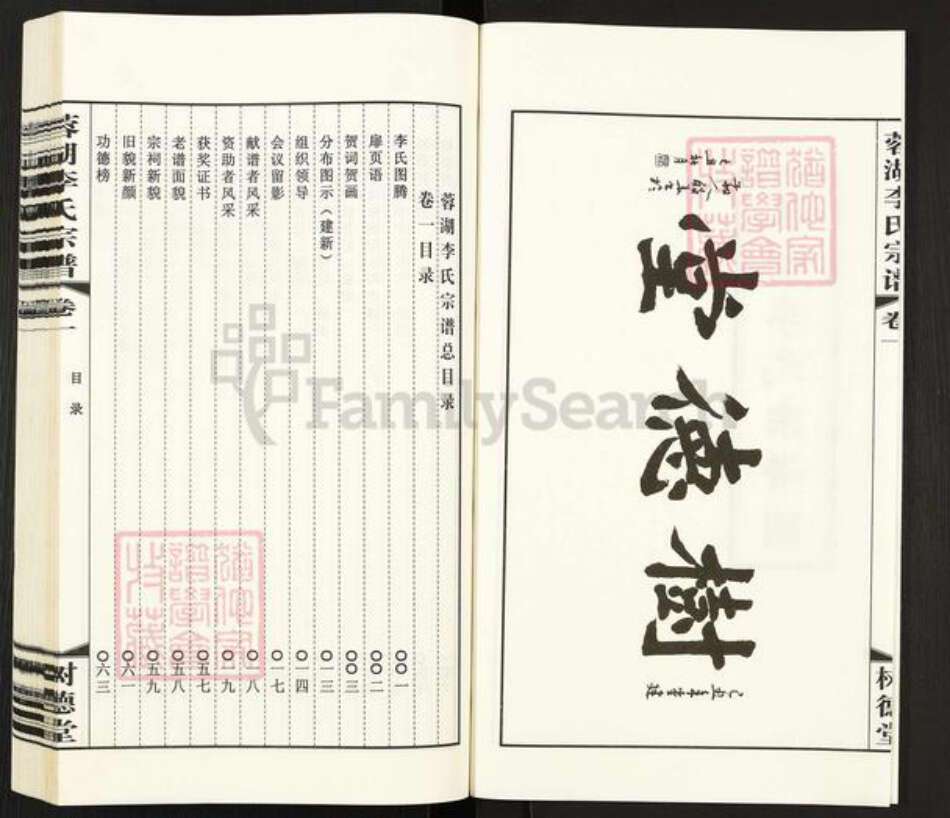 蓉湖李氏宗谱
卷
树德堂
樹德堂
蓉湖李氏宗谱总目录
卷一目录
李氏图腾 〇〇一
扉页语 〇〇二
贺词贺画 〇〇三
分布图示（建新） 〇一三
组织领导 〇一四
会议留影 〇一七
献谱者风采 〇一八
资助者风采 〇一九
获奖证书 〇五七
老谱面貌 〇五八
宗祠新貌 〇五九
旧貌新颜 〇六一
功德榜 〇六三
蓉湖李氏宗谱
卷一
目录
树德堂
FamilySearch